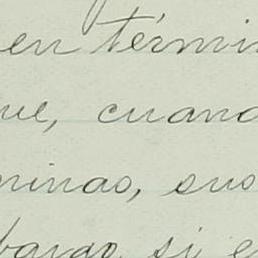 en términ
ue, cuand
minao, suo
bargo si e